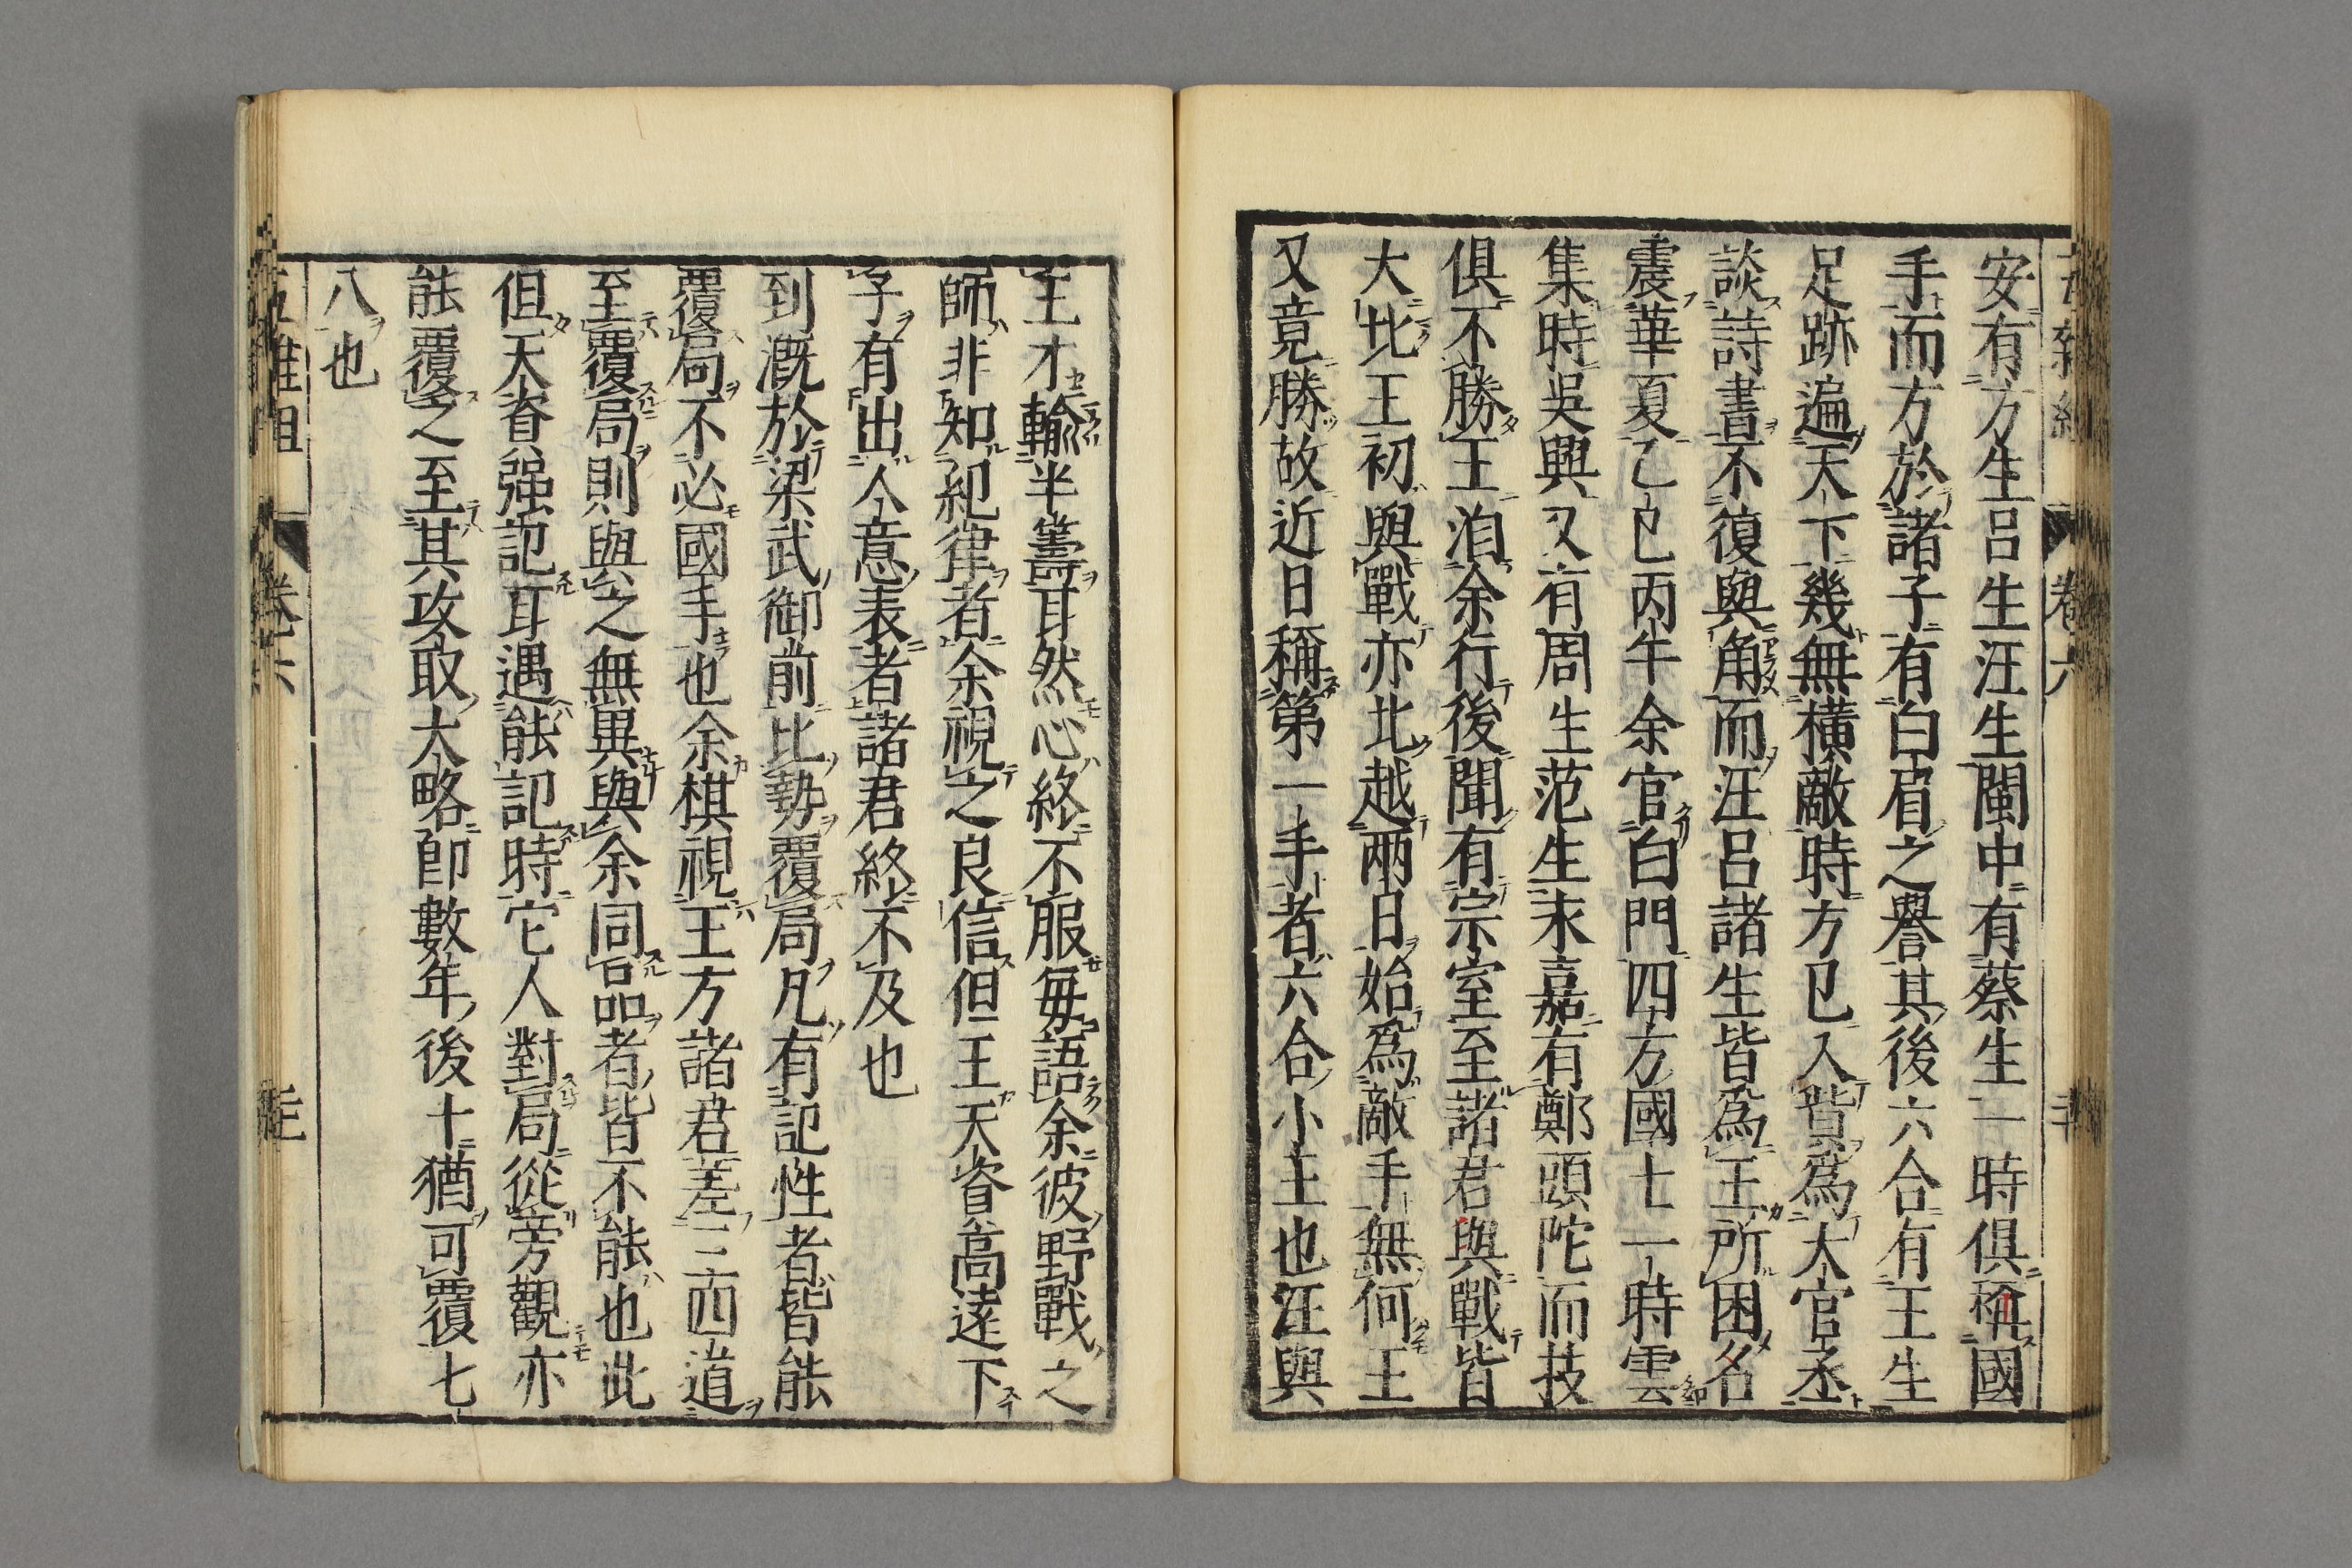 安有方生呂生汪生閩中有蔡生一時俱稱國
手而方於諸子有白眉之譽其後六合有王生
足跡遍天下幾無橫敵時方已入貲爲大官丞
談詩書不復與角而汪呂諸生皆爲王所困名
震華夏乙巳丙午余官白門四方國士一時雲
集時吳興又有周生范生永嘉有鄭頭陀而技
俱不勝王洎余行後聞有宗室至諸君與戰皆
大北王初與戰亦北越兩日始爲敵手無何王
又竟勝故近日稱第一手者六合小王也汪與
王才輸半籌耳然心終不服每語余彼野戰之
師非知紀律者余視之良信但王天資高遠下
子有出人意表者諸君終不及也
到溉於梁武御前比勢覆局凡有記性者皆能
覆局不必國手也余棋視王方諸君差三四道
至覆局則與之無異與余同品者皆不能也此
但天資强記耳遇能記時它人對局從旁觀亦
能覆之至其攻取大略即數年後十猶可覆七
八也
五雜組　卷六